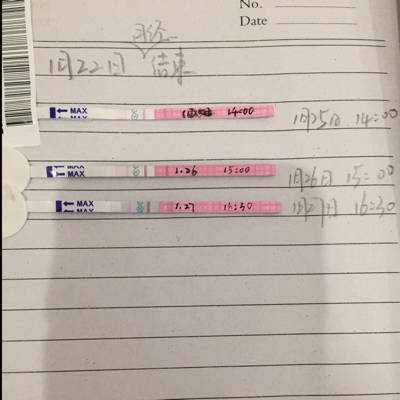 No.
Date
月经
1月22日 结束
MAX
MAX
14:00
1月25日 14:00
MAX
MAX
1.26 15:00
1月26日 15:00
MAX
MAX
1.27 16:30
1月27日 16:30